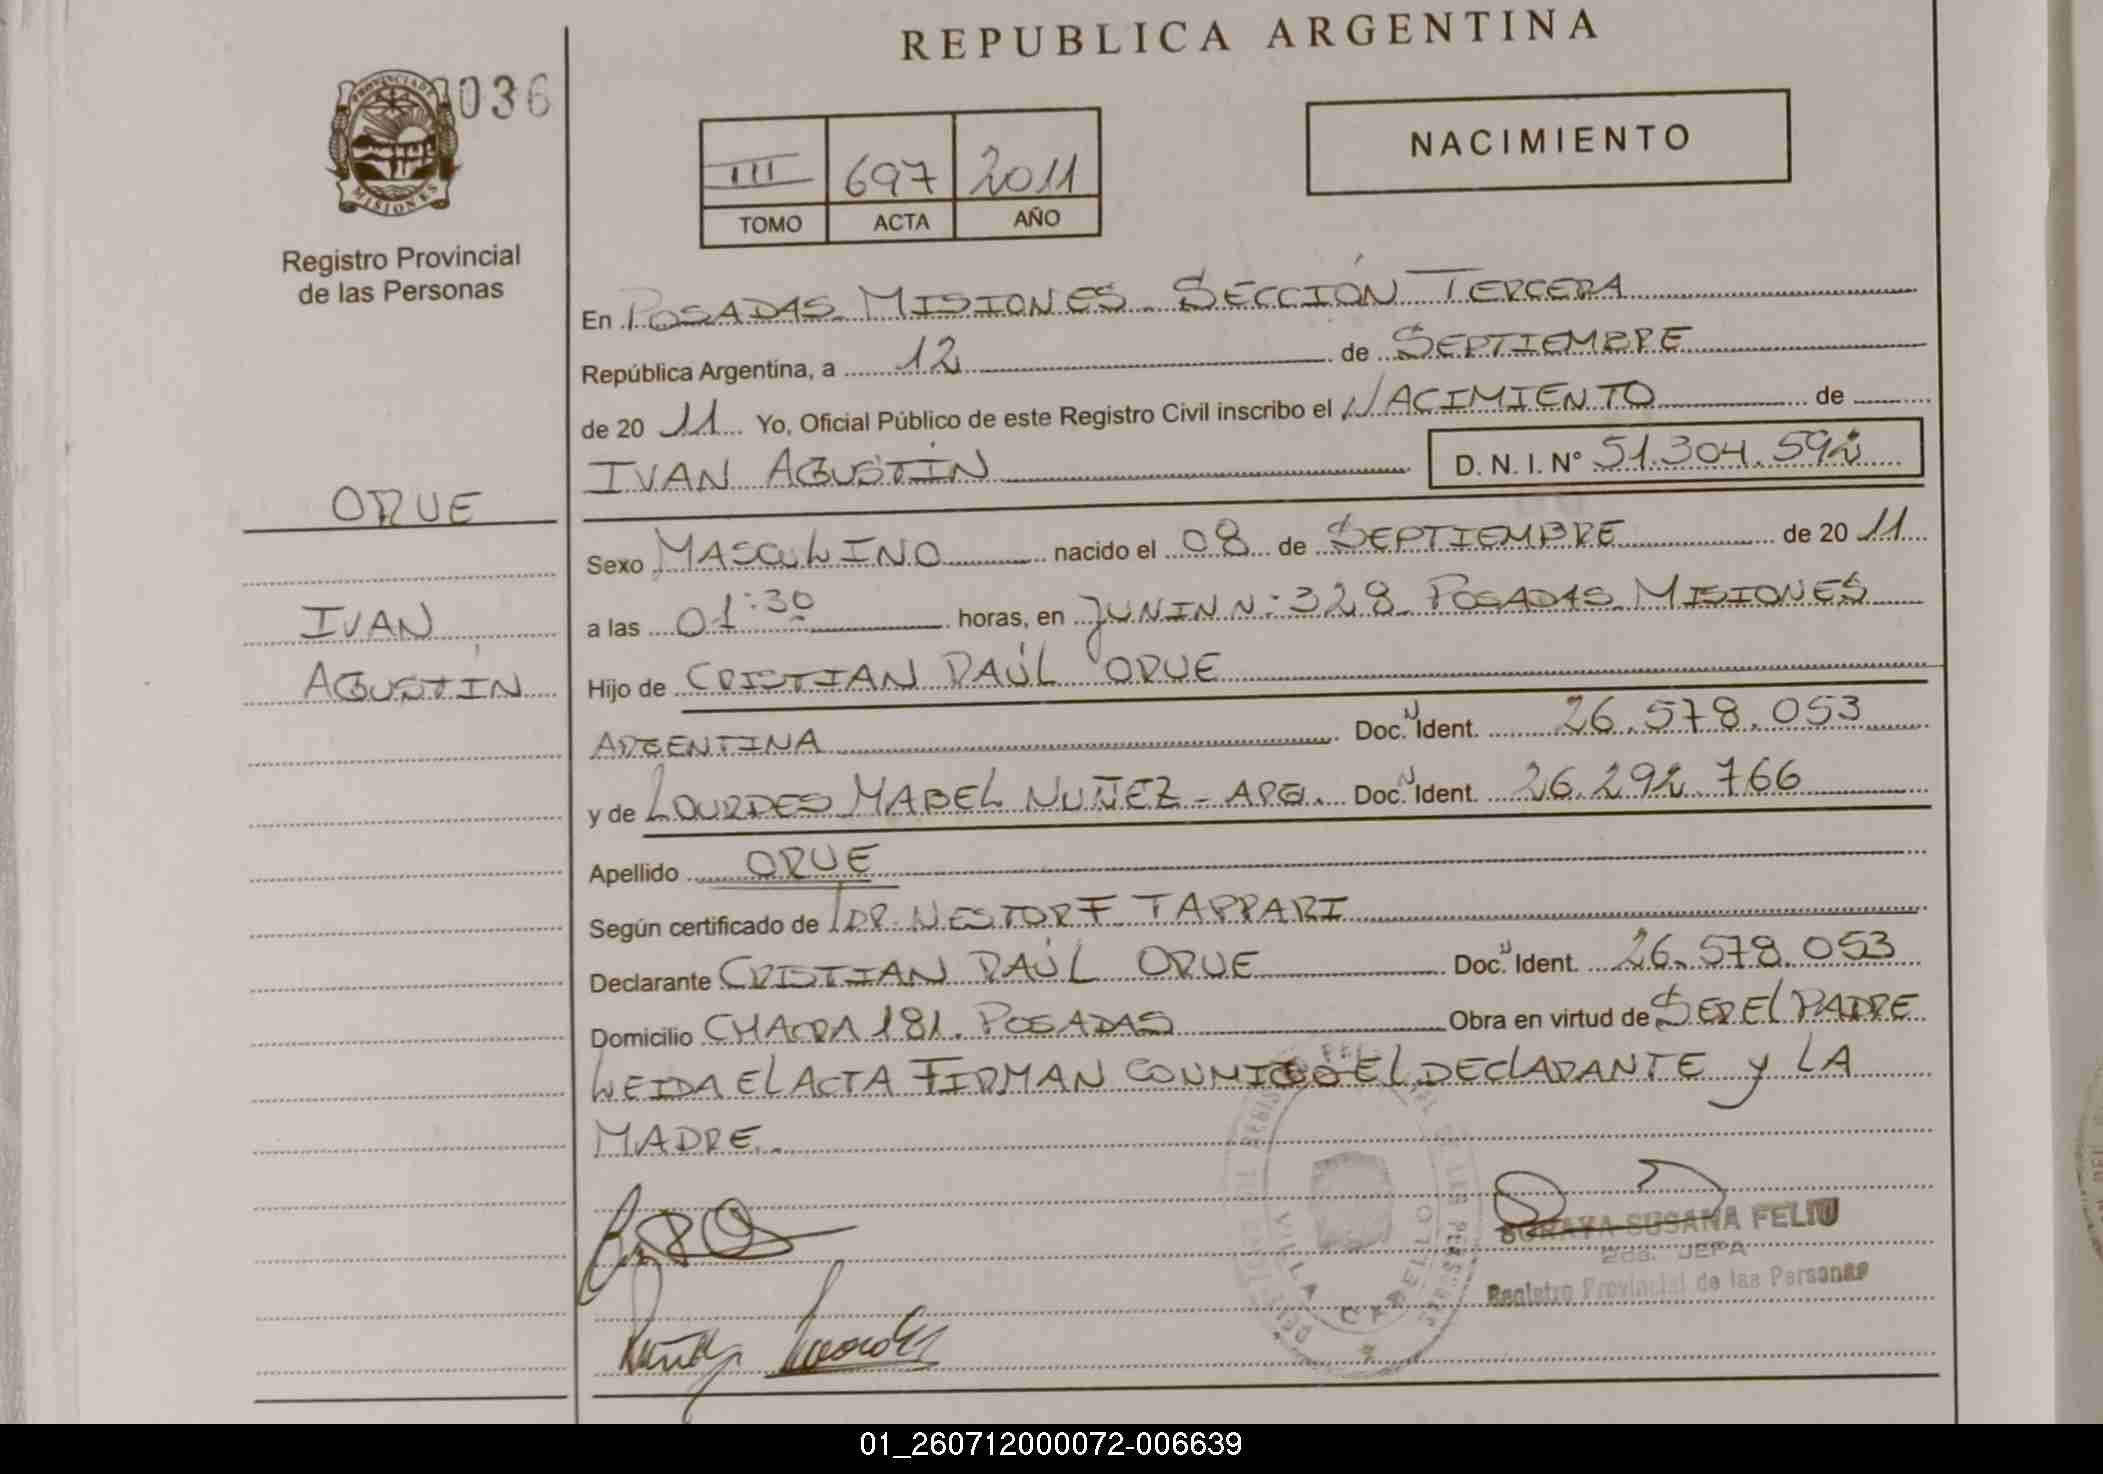 REPUBLICA ARGENTINA
PROVINCIA DE
MISIONES
036
Registro Provincial
de las Personas
NACIMIENTO
III 697 2011
TOMO ACTA AÑO
En POSADAS. MISIONES - SECCIÓN TERCERA
República Argentina, a 12 de SEPTIEMBRE
de 20 11 Yo, Oficial Público de este Registro Civil inscribo el NACIMIENTO de
IVAN AGUSTÍN D. N. I. N° 51.304.592
ORUE
IVAN
AGUSTÍN
Sexo MASCULINO nacido el 08 de SEPTIEMBRE de 20 11
a las 01:30 horas, en JUNIN N: 328 POSADAS MISIONES
Hijo de CRISTIAN RAÚL ORUE
ARGENTINA Doc. Ident. 26.578.053
y de LOURDES MABEL NUÑEZ - ARG. Doc. Ident. 26.292.766
Apellido ORUE
Según certificado de DR. NESTOR F TAPPARI
Declarante CRISTIAN RAÚL ORUE Doc. Ident. 26.578.053
Domicilio CHACRA 181. POSADAS Obra en virtud de SER El PADRE
LEIDA El ACTA FIRMAN CONMIGO El DEClARANTE y LA
MADRE.
VILLA CABELLO
SORAYA SUSANA FELIU
2da. JEFA
Registro Provincial de las Personas
01_260712000072-006639